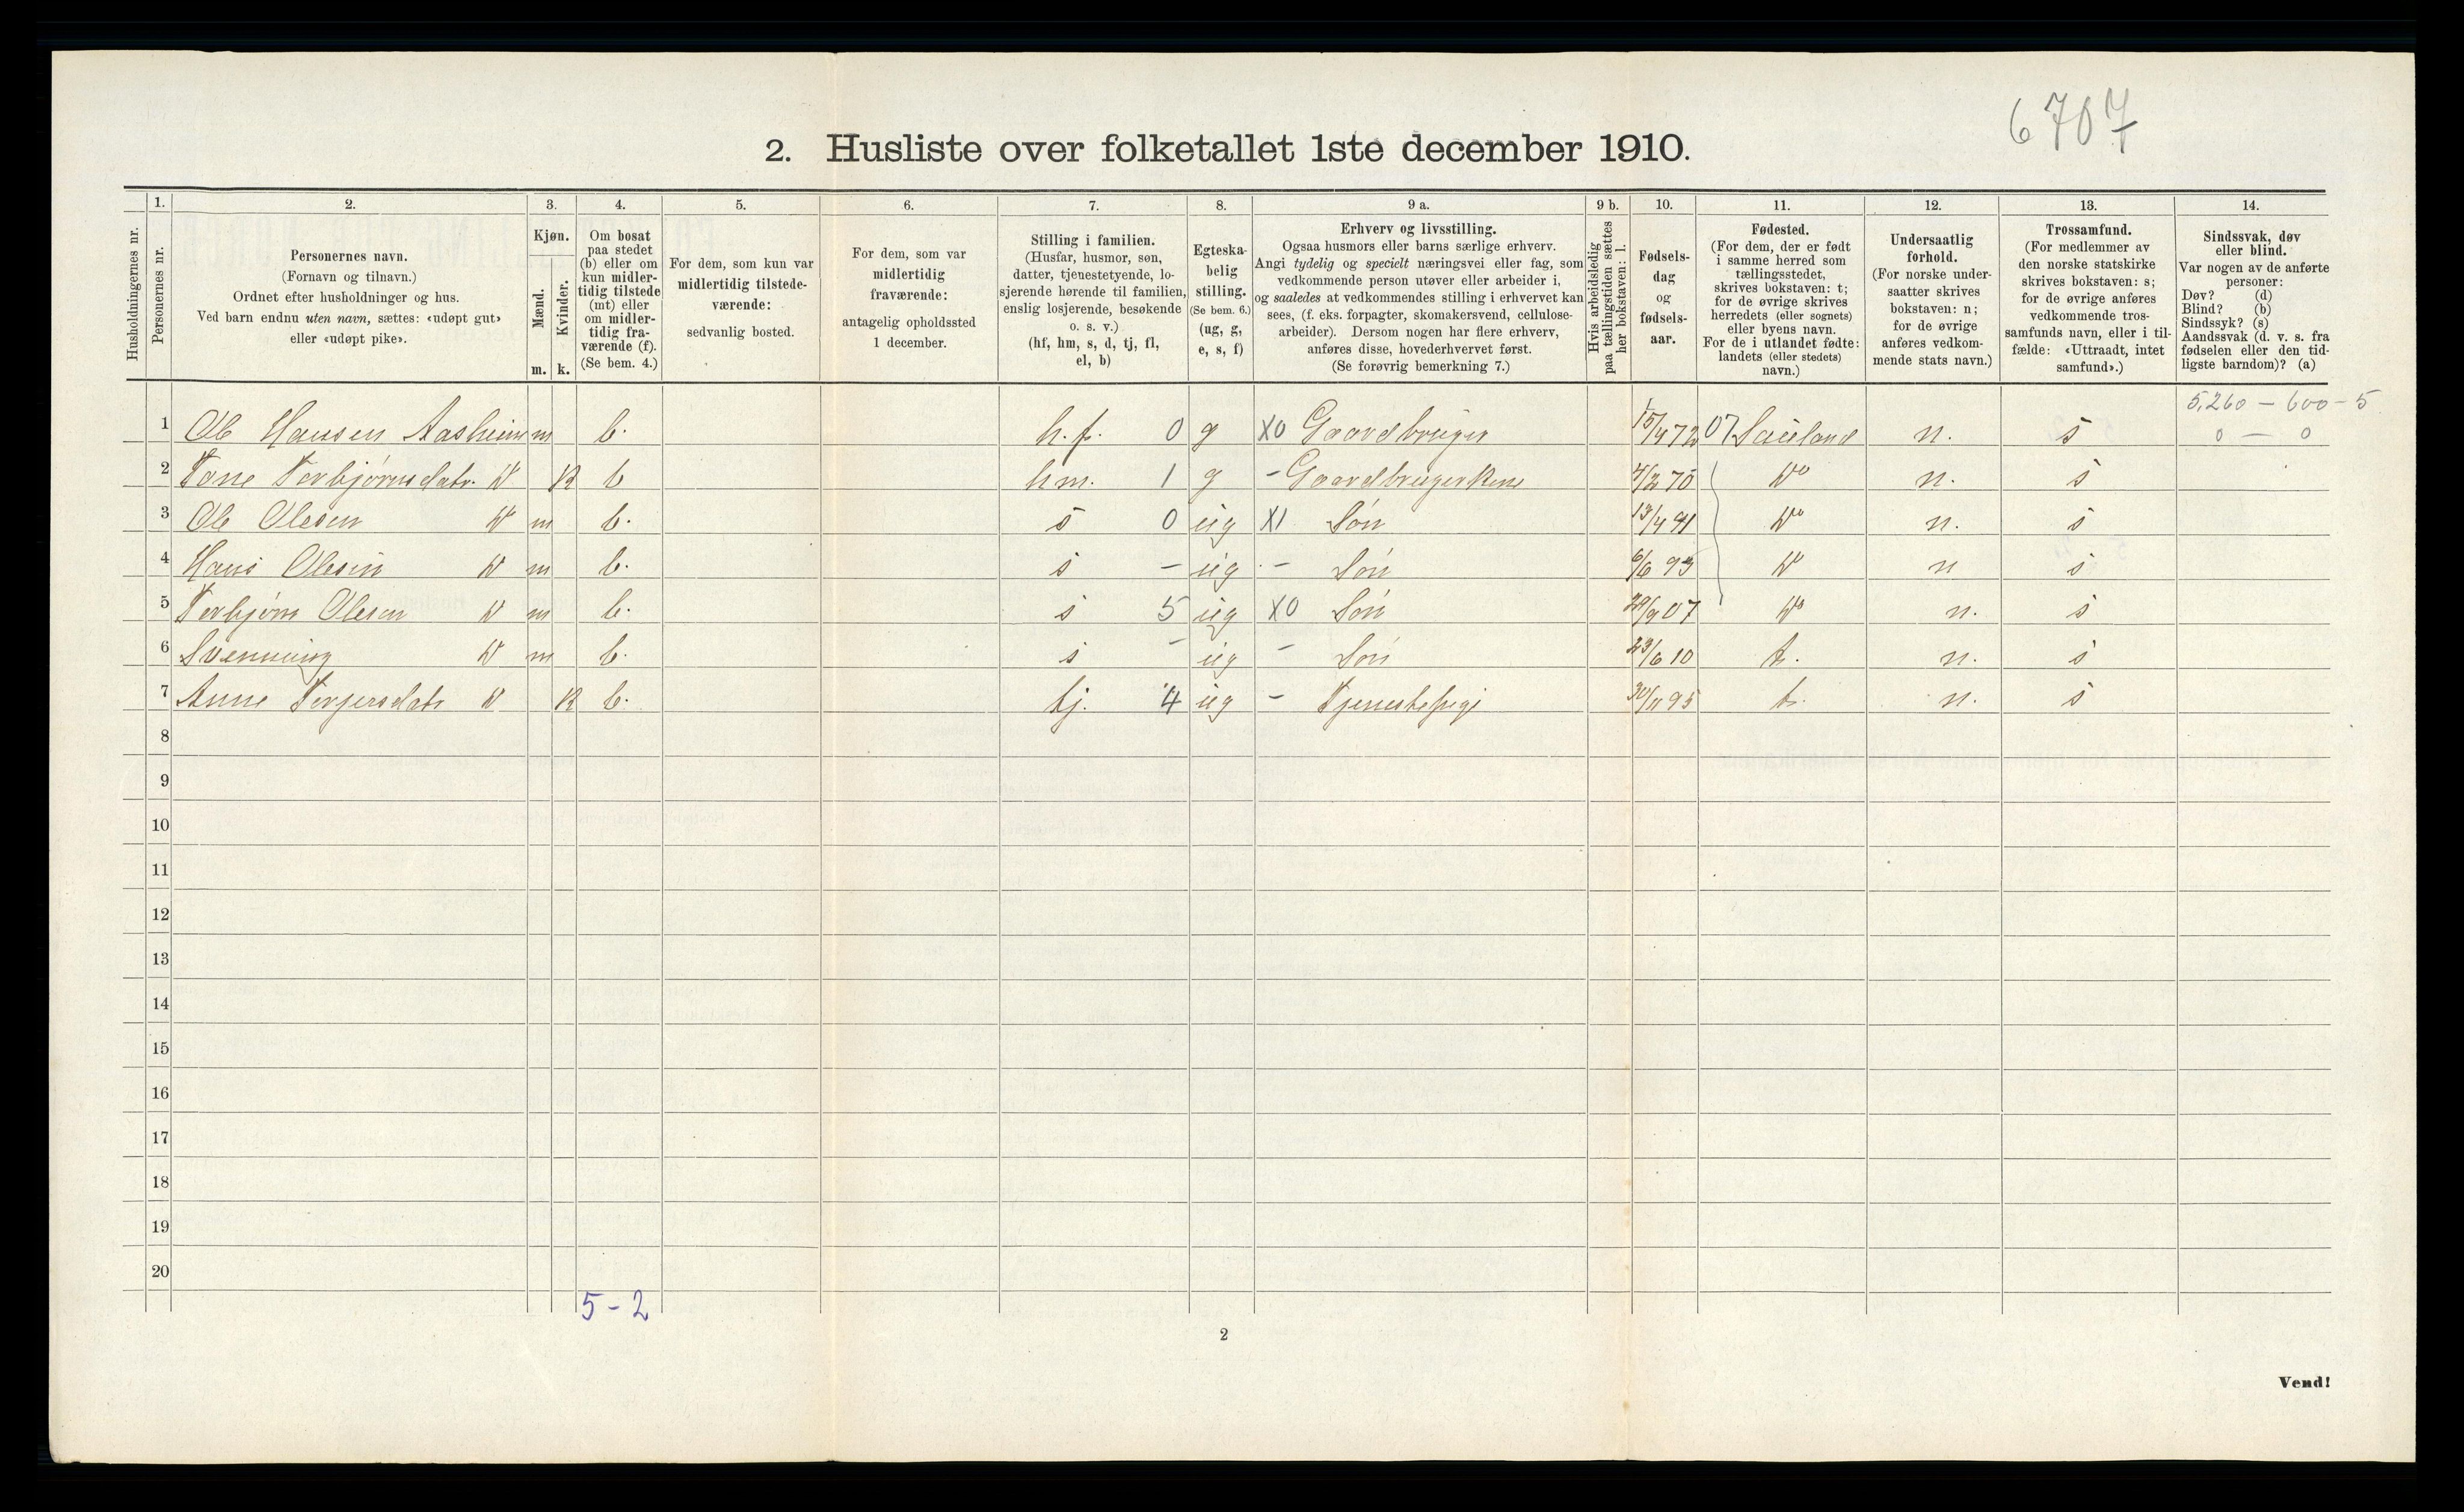 6707
2. Husliste over folketallet 1ste december 1910.
Husholdningernes nr.
1.
Personernes nr.
2.
Personernes navn.
(Fornavn og tilnavn.)
Ordnet efter husholdninger og hus.
Ved barn endnu uten navn, sættes: «udøpt gut»
eller «udøpt pike».
3.
Kjøn.
Mænd.
Kvinder.
m. k.
4.
Om bosat
paa stedet
(b) eller om
kun midler-
tidig tilstede
(mt) eller
om midler-
tidig fra-
værende (f).
(Se bem. 4.)
5.
For dem, som kun var
midlertidig tilstede-
værende:
sedvanlig bosted.
6.
For dem, som var
midlertidig
fraværende:
antagelig opholdssted
1 december.
7.
Stilling i familien.
(Husfar, husmor, søn,
datter, tjenestetyende, lo-
sjerende hørende til familien,
enslig losjerende, besøkende
o. s. v.)
(hf, hm, s, d, tj, fl,
el, b)
8.
Egteska-
belig
stilling.
(Se bem. 6.)
(ug, g,
e, s, f)
9 a.
Erhverv og livsstilling.
Ogsaa husmors eller barns særlige erhverv.
Angi tydelig og specielt næringsvei eller fag, som
vedkommende person utøver eller arbeider i,
og saaledes at vedkommendes stilling i erhvervet kan
sees, (f. eks. forpagter, skomakersvend, cellulose-
arbeider). Dersom nogen har flere erhverv,
anføres disse, hovederhvervet først.
(Se forøvrig bemerkning 7.)
9 b.
Hvis arbeidsledig
paa tællingstiden sættes
her bokstaven: l.
10.
Fødsels-
dag
og
fødsels-
aar.
11.
Fødested.
(For dem, der er født
i samme herred som
tællingsstedet,
skrives bokstaven: t;
for de øvrige skrives
herredets (eller sognets)
eller byens navn.
For de i utlandet fødte:
landets (eller stedets)
navn.)
12.
Undersaatlig
forhold.
(For norske under-
saatter skrives
bokstaven: n;
for de øvrige
anføres vedkom-
mende stats navn.)
13.
Trossamfund.
(For medlemmer av
den norske statskirke
skrives bokstaven: s;
for de øvrige anføres
vedkommende tros-
samfunds navn, eller i til-
fælde: «Uttraadt, intet
samfund».)
14.
Sindssvak, døv
eller blind.
Var nogen av de anførte
personer:
Døv? (d)
Blind? (b)
Sindssyk? (s)
Aandssvak (d. v. s. fra
fødselen eller den tid-
ligste barndom)? (a)
5,260 - 600 - 5
1 Ole Hansen Aasheim m b. h.f. 0 g X0 Gaardbruger 15/4 72 07 Sauland n. s 0 - 0
2 Tone Torbjørnsdatr. Do K b hm. 1 g - Gaardbrugerkone 4/2 70 Do n. s
3 Ole Olesen Do m b. s 0 ug X1 Søn 13/4 91 Do n. s
4 Hans Olesen Do m b. s - ug - Søn 6/6 93 Do n s
5 Torbjørn Olesen Do m b. s 5 ug X0 Søn 29/9 07 Do n. s
6 Svenning Do m b. s - ug - Søn 23/6 10 t. n. s
7 Anne Torjersdatr Do K b. tj. 4 ug - Tjenestepige 30/11 95 t. n. s
8
9
10
11
12
13
14
15
16
17
18
19
20
5-2
2
Vend!